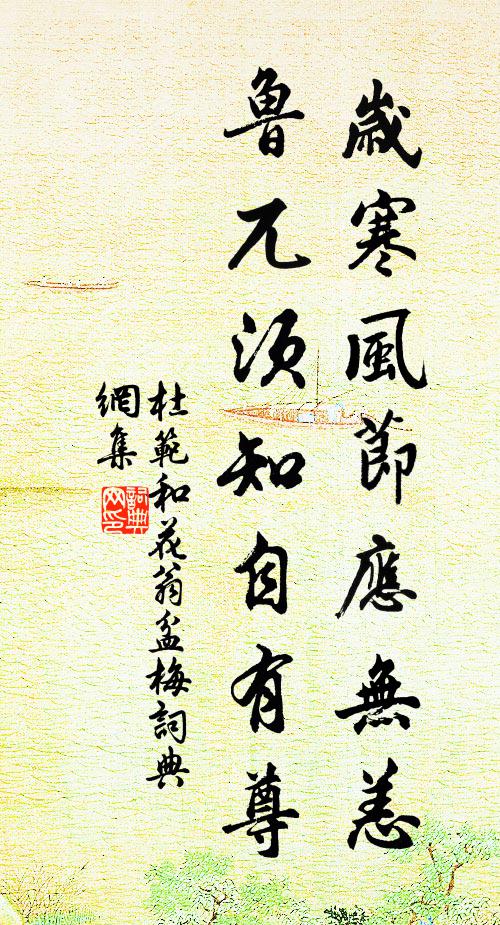 歲寒風節應無恙
魯兀須知自有尊
杜範和花翁盆梅詞典
網集
詞典
网印